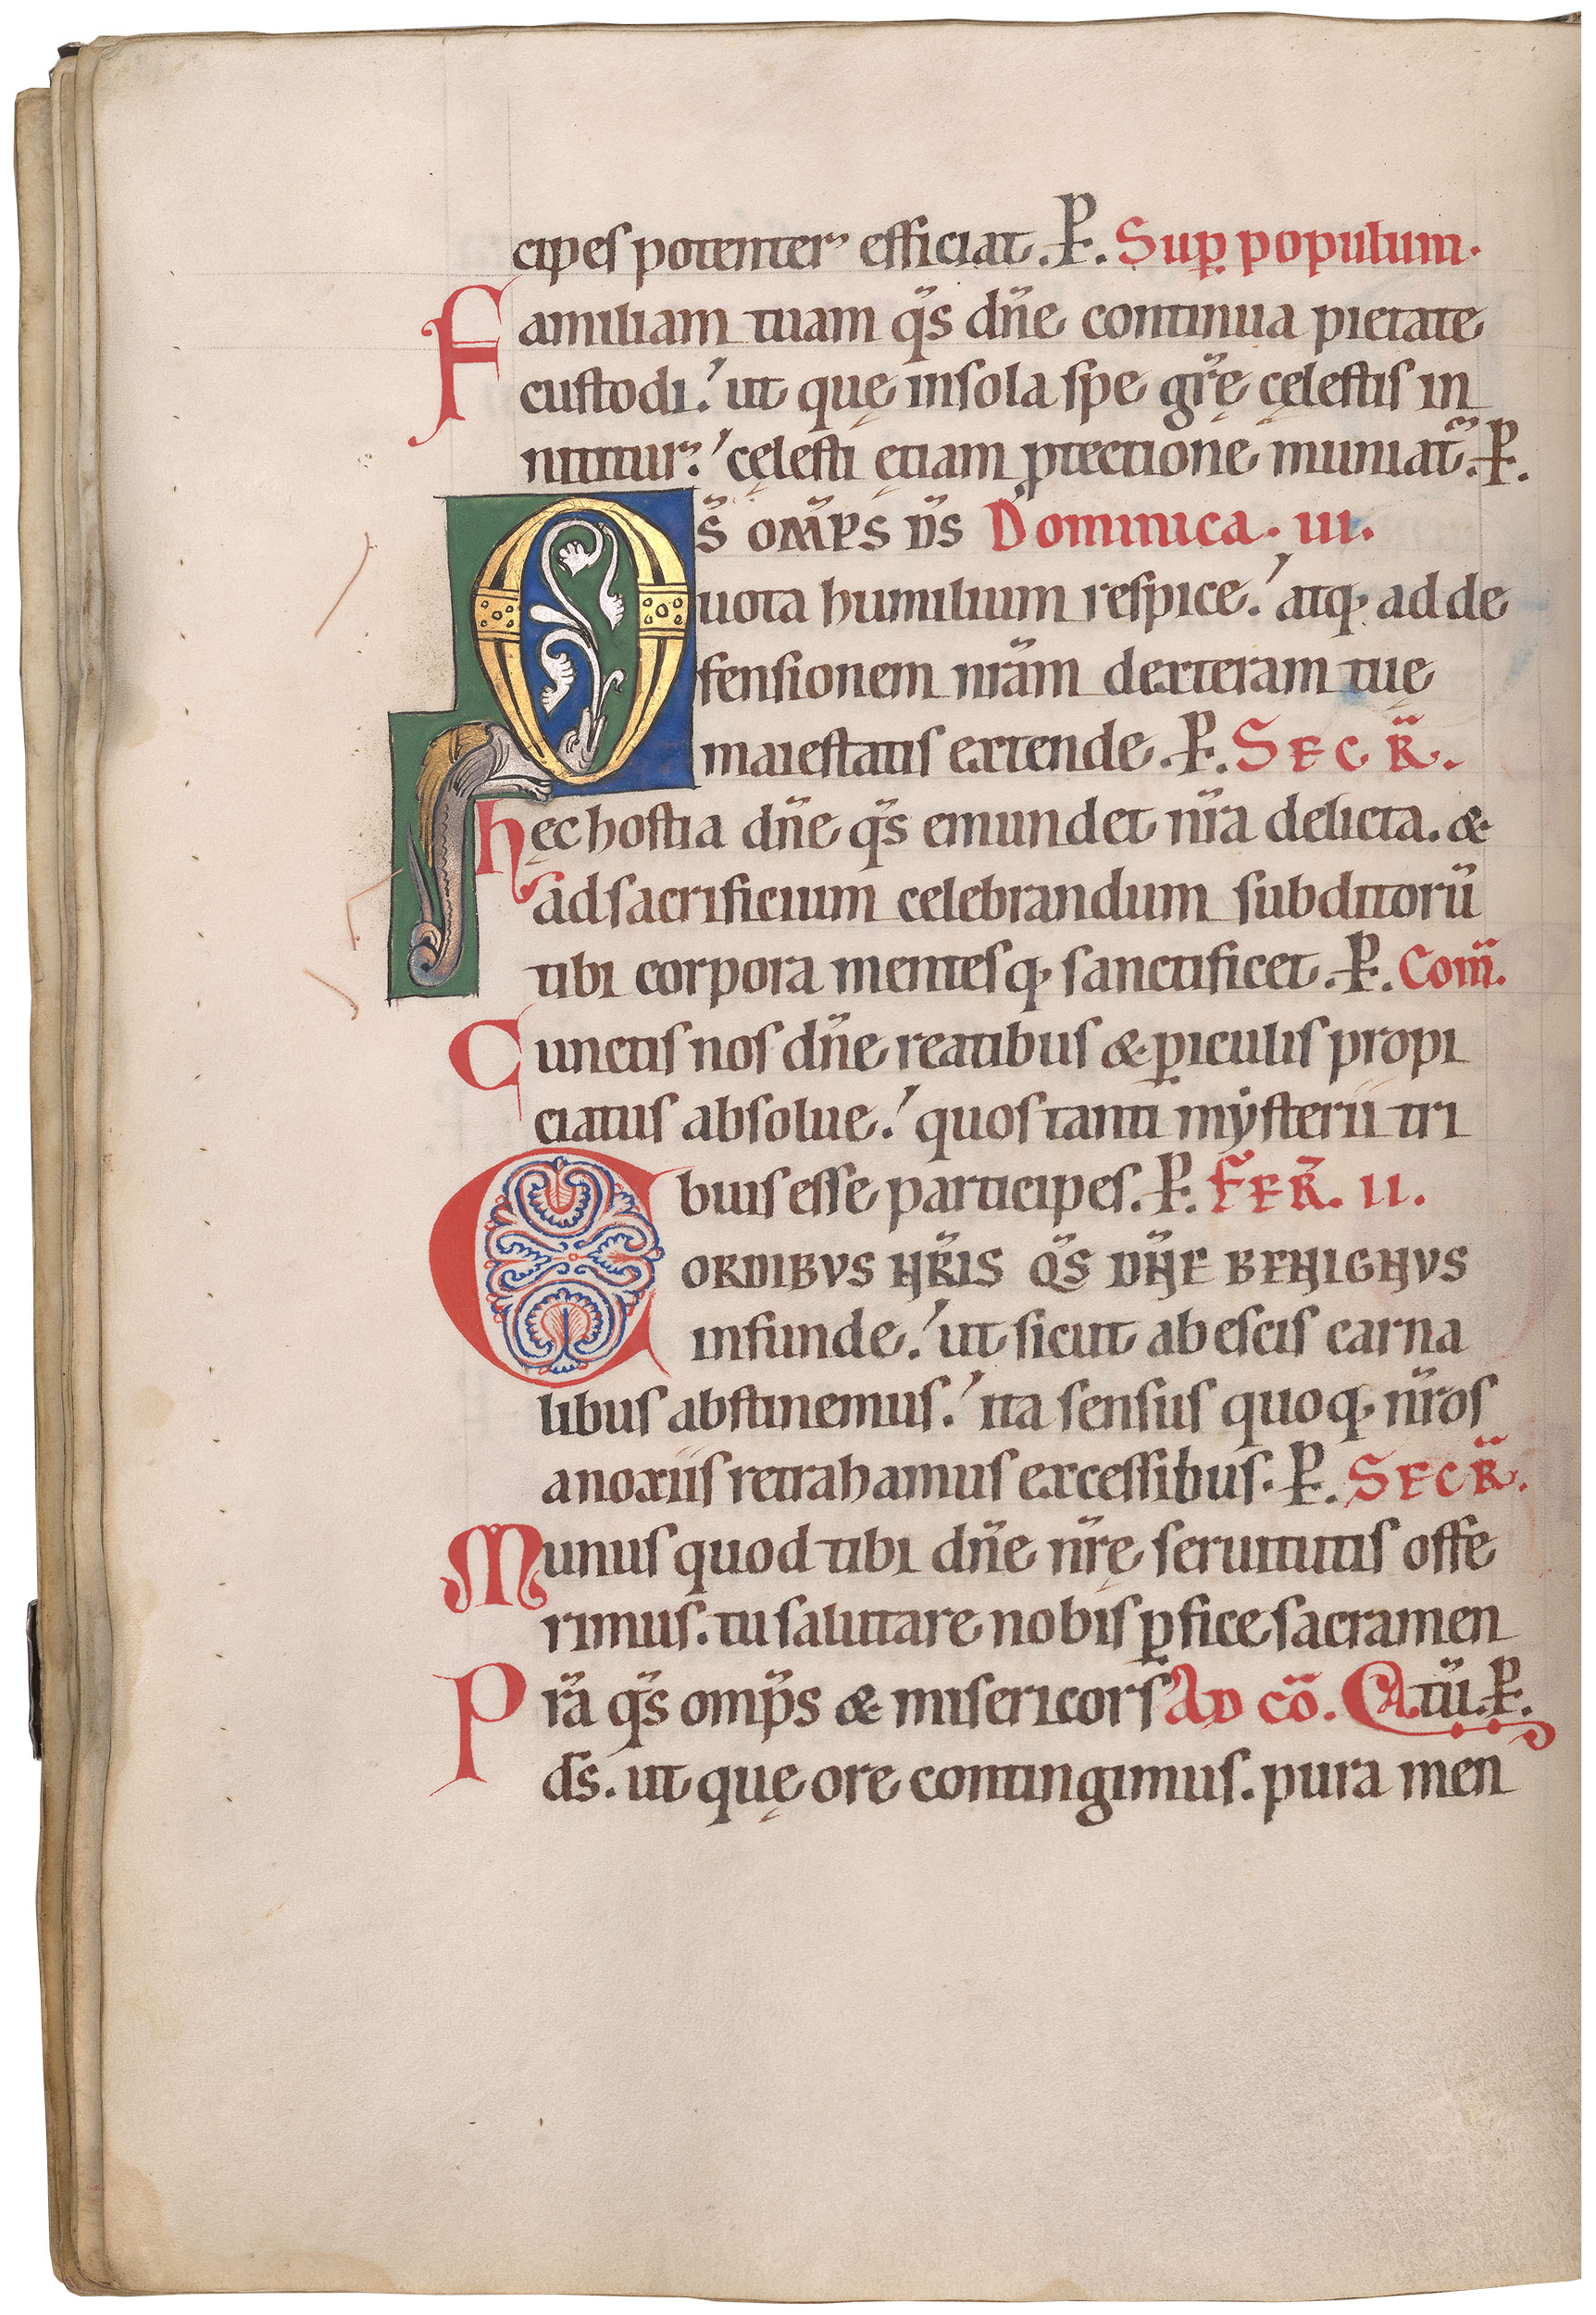 cipes potenter efficiat. P. Sup populum.
Familiam tuam q̄s dn̄e continua pietate
custodi. ut quę in sola spe gr̄ę cęlestis in
nititur. cęlesti ętiam ꝓtectione muniat̄. P.
Qs̄ om̄ps d̄s Dominica. III.
uota humilium respice. atq; ad de
fensionem nr̄am dexteram tuę
maiestatis extende. P. SECR̄.
hęc hostia dn̄e q̄s emundet nr̄a delicta. &
ad sacrificium celebrandum subditorū
tibi corpora mentesq; sanctificet. P. Com̄.
Cunctis nos dn̄e reatibus & ꝑiculis propi
ciatus absolue. quos tanti mẏsterii tri
buis esse participes. P. FER̄. II.
CORDIBVS NR̄IS Q̄S DN̄E BENIGNVS
infunde. ut sicut ab escis carna
libus abstinemus. ita sensus quoq; nr̄os
a noxiis retrahamus excessibus. P. SECR̄.
Munus quod tibi dn̄e nr̄ę seruitutis offe
rimus. tu salutare nobis ꝑfice sacramen
Pr̄a q̄s omp̄s & misericors AD CŌ. tū. P.
ds̄. ut quę ore contingimus. pura men